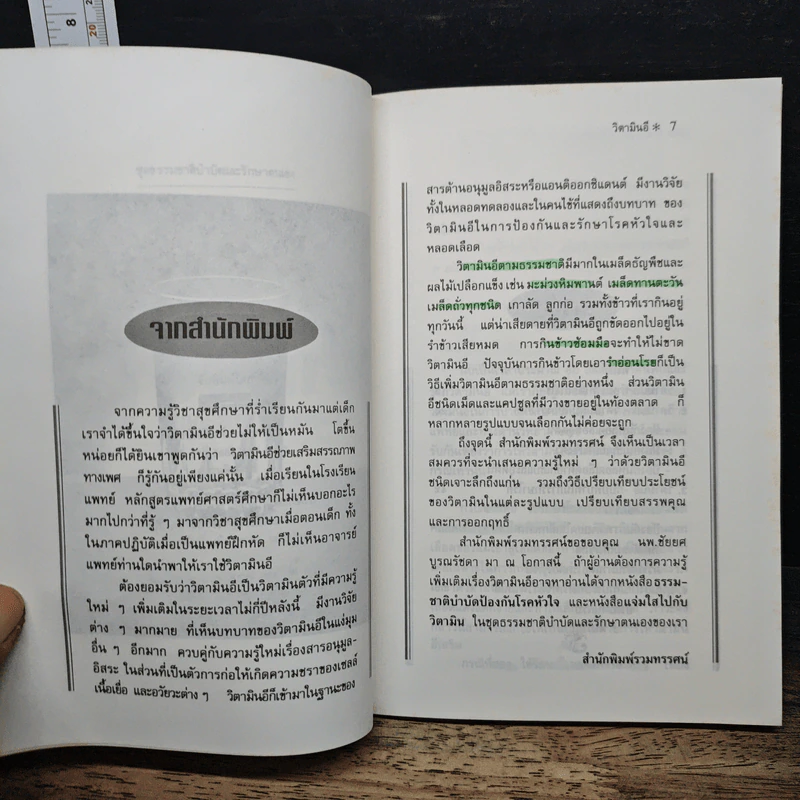 จากสำนักพิมพ์
จากความรู้วิชาสุขศึกษาที่ร่ำเรียนกันมาแต่เด็ก
เราจำได้ขึ้นใจว่าวิตามินอีช่วยไม่ให้เป็นหมัน โตขึ้น
หน่อยก็ได้ยินเขาพูดกันว่า วิตามินอีช่วยเสริมสรรถภาพ
ทางเพศ ก็รู้กันอยู่เพียงแค่นั้น เมื่อเรียนในโรงเรียน
แพทย์ หลักสูตรแพทย์ศาสตร์ศึกษาก็ไม่เห็นบอกอะไร
มากไปกว่าที่รู้ ๆ มาจากวิชาสุขศึกษาเมื่อตอนเด็ก ทั้ง
ในภาคปฏิบัติเมื่อเป็นแพทย์ฝึกหัด ก็ไม่เห็นอาจารย์
แพทย์ท่านใดนำพาให้เราใช้วิตามินอี
ต้องยอมรับว่าวิตามินอีเป็นวิตามินตัวที่มีความรู้
ใหม่ ๆ เพิ่มเติมในระยะเวลาไม่กี่ปีหลังนี้ มีงานวิจัย
ต่าง ๆ มากมาย ที่เห็นบทบาทของวิตามินอีในแง่มุม
อื่น ๆ อีกมาก ควบคู่กับความรู้ใหม่เรื่องสารอนุมูล-
อิสระ ในส่วนที่เป็นตัวการก่อให้เกิดความชราของเซลล์
เนื้อเยื่อ และอวัยวะต่าง ๆ วิตามินอีก็เข้ามาในฐานะของ
วิตามินอี * 7
สารต้านอนุมูลอิสระหรือแอนติออกซิแดนต์ มีงานวิจัย
ทั้งในหลอดทดลองและในคนไข้ที่แสดงถึงบทบาท ของ
วิตามินอีในการป้องกันและรักษาโรคหัวใจและ
หลอดเลือด
วิตามินอีตามธรรมชาติมีมากในเมล็ดธัญพืชและ
ผลไม้เปลือกแข็ง เช่น มะม่วงหิมพานต์ เมล็ดทานตะวัน
เมล็ดถั่วทุกชนิด เกาลัด ลูกก่อ รวมทั้งข้าวที่เรากินอยู่
ทุกวันนี้ แต่น่าเสียดายที่วิตามินอีถูกขัดออกไปอยู่ใน
รำข้าวเสียหมด การกินข้าวซ้อมมือจะทำให้ไม่ขาด
วิตามินอี ปัจจุบันการกินข้าวโดยเอารำอ่อนโรยก็เป็น
วิธีเพิ่มวิตามินอีตามธรรมชาติอย่างหนึ่ง ส่วนวิตามิน
อีชนิดเม็ดและแคปซูลที่มีวางขายอยู่ในท้องตลาด ก็
หลากหลายรูปแบบจนเลือกกันไม่ค่อยจะถูก
ถึงจุดนี้ สำนักพิมพ์รวมทรรศน์ จึงเห็นเป็นเวลา
สมควรที่จะนำเสนอความรู้ใหม่ ๆ ว่าด้วยวิตามินอี
ชนิดเจาะลึกถึงแก่น รวมถึงวิธีเปรียบเทียบประโยชน์
ของวิตามินในแต่ละรูปแบบ เปรียบเทียบสรรพคุณ
และการออกฤทธิ์
สำนักพิมพ์รวมทรรศน์ขอขอบคุณ นพ.ชัยยศ
บูรณรัชดา มา ณ โอกาสนี้ ถ้าผู้อ่านต้องการความรู้
เพิ่มเติมเรื่องวิตามินอีอาจหาอ่านได้จากหนังสือธรรม-
ชาติบำบัดป้องกันโรคหัวใจ และหนังสือแจ่มใสไปกับ
วิตามิน ในชุดธรรมชาติบำบัดและรักษาตนเองของเรา
สำนักพิมพ์รวมทรรศน์
8
20